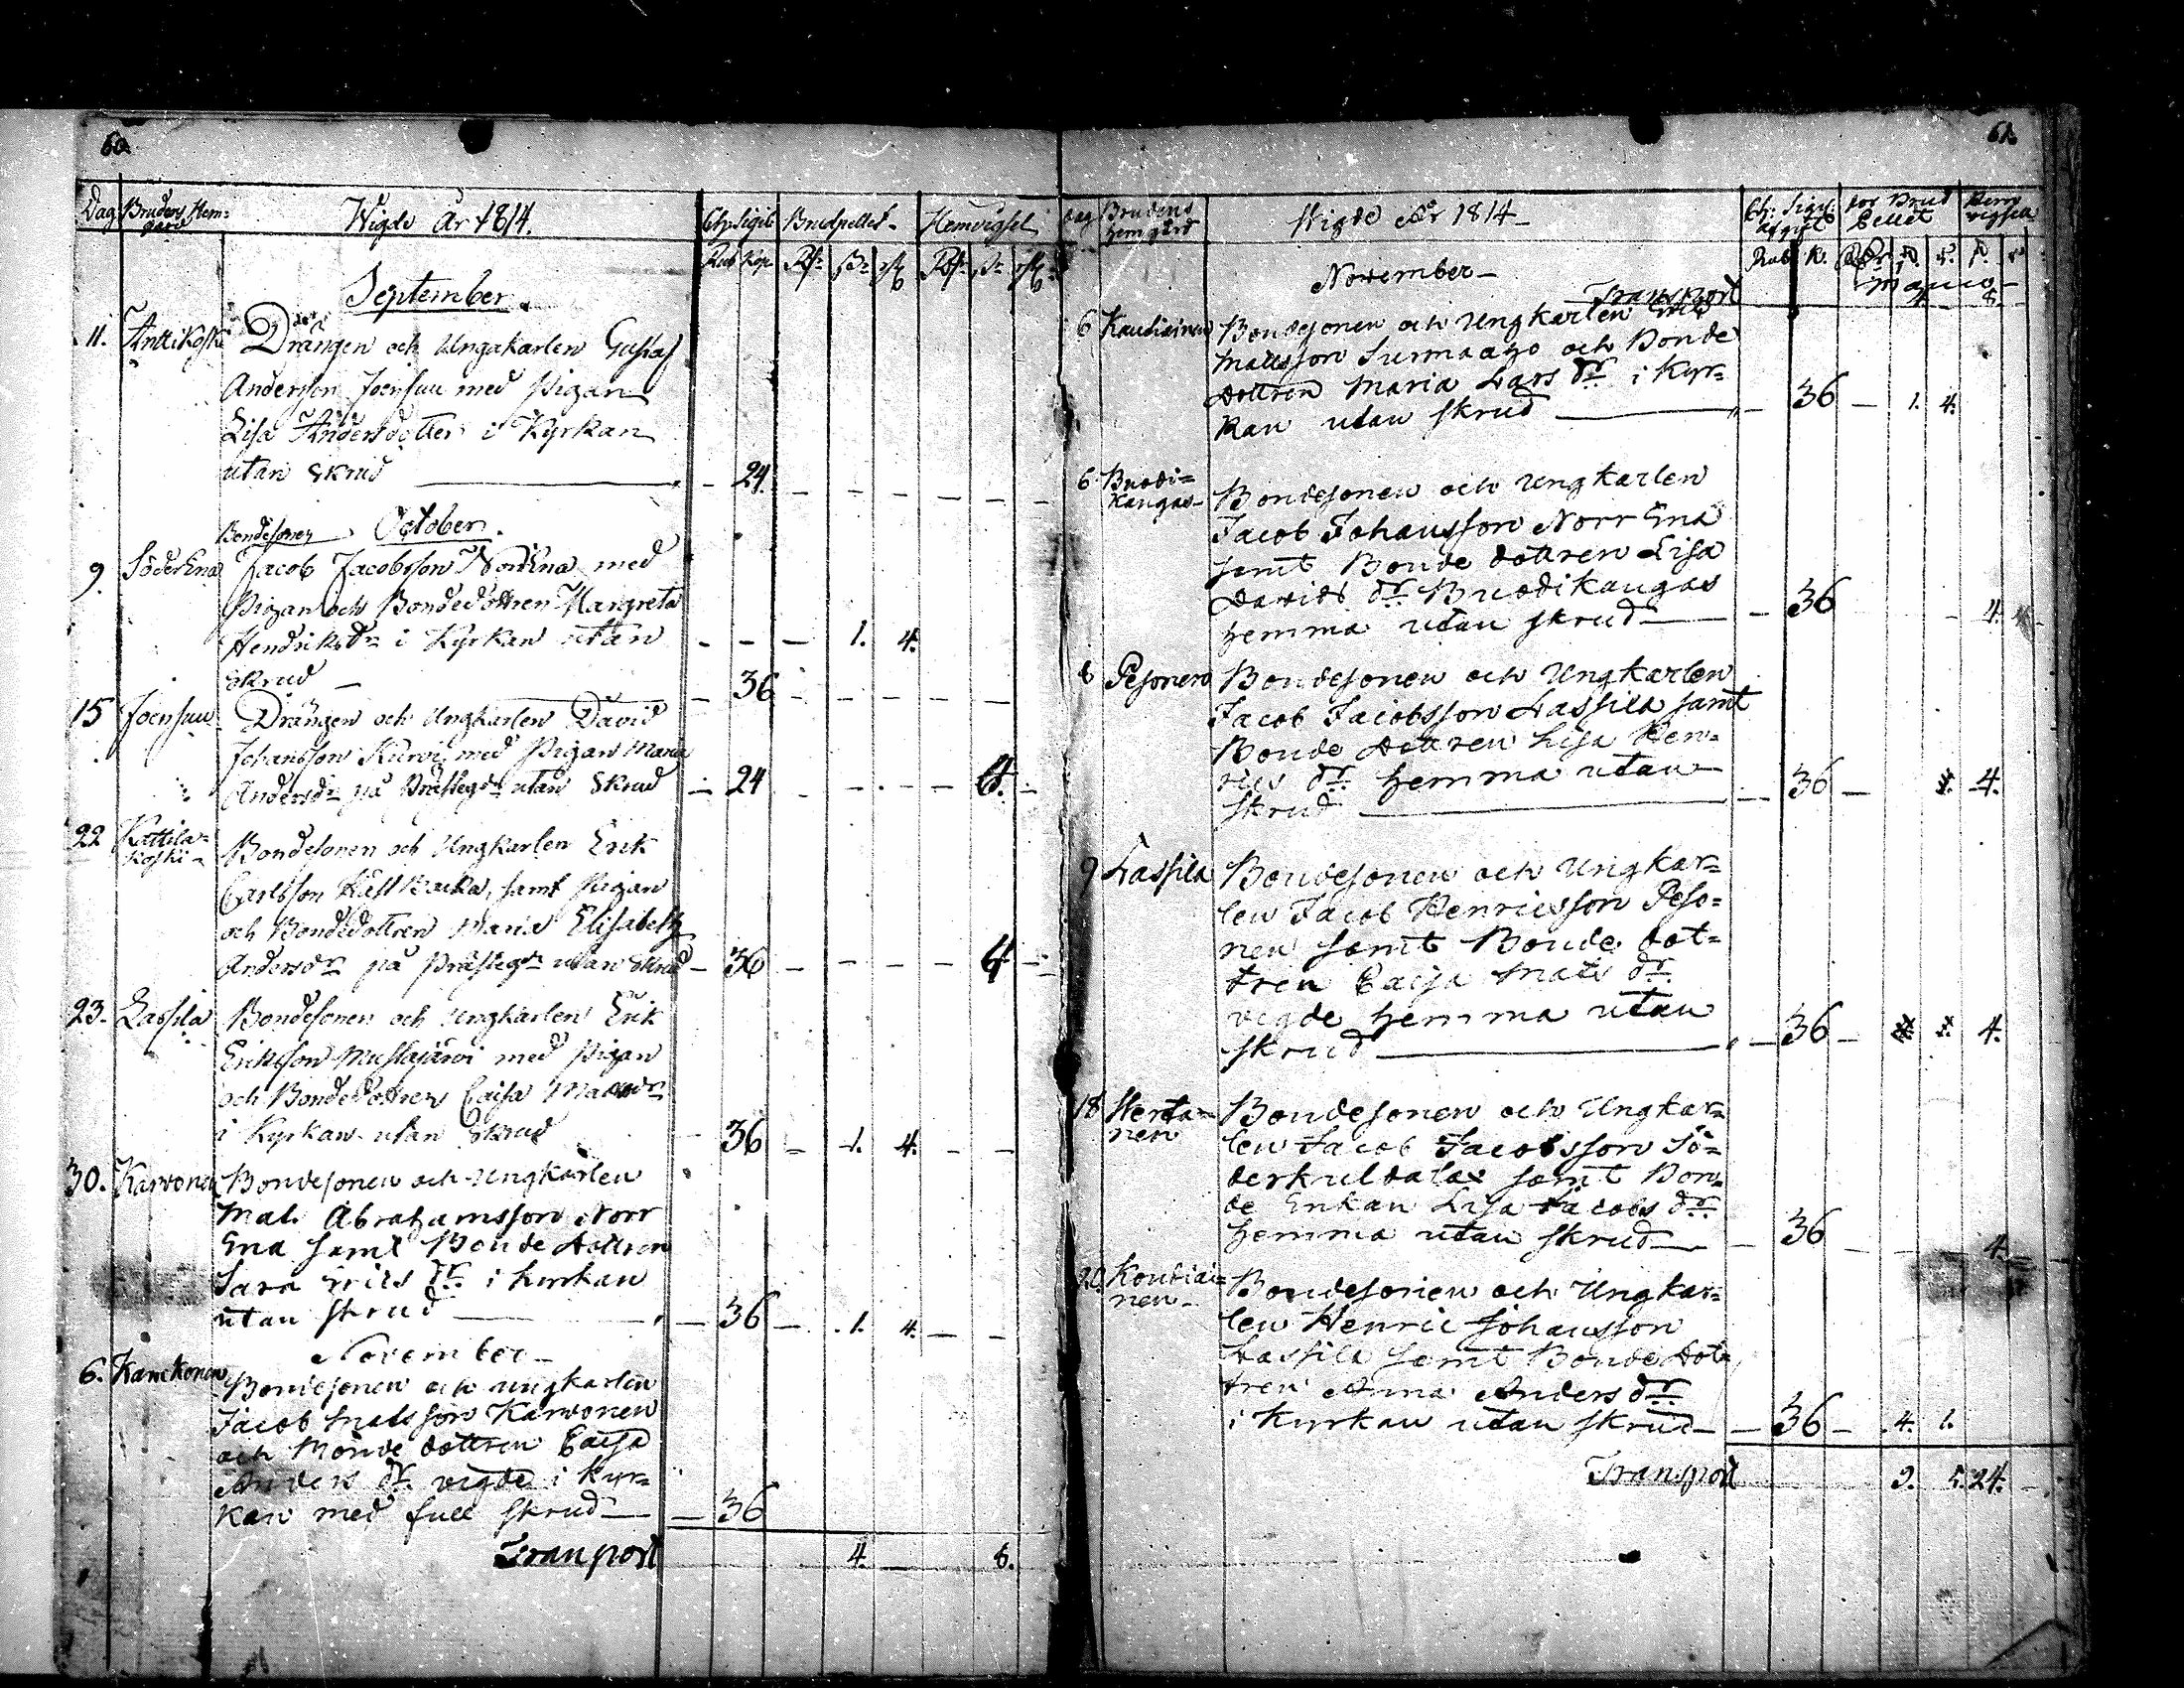 60
Dag Brudens Hem= Wigde År 1814. Ch. Sigil. Brudpellet Hemvigsel
gård
Rub Kop. Rdr ß r Rdr ß r
September.
11. Anttikoski Drängen och Ungakarlen Gustaf
Andersson Joensuu med Pigan
Lisa Andersdotter i Kyrkan
utan Skrud — 24. — — — — — —
October.
Bondesonen
9. SöderEna Jacob Jacobsson NorrEna med
Pigan och Bondedottren Margreta
Hendriksdr i Kyrkan utan — — — 1. 4.
Skrud — — 36 — — — — — —
15 Joensuu Drängen och Ungkarlen David
Johansson Kurvi med Pigan Maria
Andersdr på Prästegdn utan Skrud — 24 — — — — 4. —
22 Kattila=
koski Bondesonen och Ungkarlen Erik
Carlsson Källbacka, samt Pigan
och Bondedottren Maria Elisabeth
Andersdr på Prästegdn utan Skrud — 36 — — — — 4. —
23. Lassila Bondesonen och Ungkarlen Erik
Eriksson Mustajärvi med Pigan
och Bondedottren Caisa
i Kyrkan utan Skrud — 36 — 1. 4. — —
30. Karvonen Bondesonen och Ungkarlen
Mats Abrahamsson Norr
Ena samt Bonde dottren
Sara Erics dr i kyrkan
utan skrud — 36 — 1. 4. — —
November —
6. Kanckonen Bondesonen och ungkarlen
Jacob Matsson Karvonen
och Bonde dottren Caisa
Anders dr. vigde i kyr=
kan med full skrud — 36
Transport 4. 8.
61.
dag Brudens Wigde År 1814 — Ch: Sigil. för Brud Hem
hemgård afgift Pellet vigsell
Rub. K. Rdr ß. r. ß. r
November — Banco —
Transport 4. 8.
6 Kaudiainen Bondesonen och Ungkarlen Eric
Mattsson Surmaaho och Bonde
dottren Maria Lars dr i kyr=
kan utan skrud — 36 — 1. 4.
6 Buodi=
kangas — Bondesonen och Ungkarlen
Jacob Johansson Norr Ena
samt Bonde dottren Lisa
Davids dr Buodikangas
hemma utan skrud — 36 — 4.
8 Pesonen Bondesonen och Ungkarlen
Jacob Jacobsson Lassila samt
Bonde dottren Lisa Hen=
rics dr hemma utan — 36 — 4.
skrud —
9 Lassila Bondesonen och Ungkar=
len Jacob Henricsson Peso=
nen samt Bonde dot=
tren Caisa Mats dr
vigde hemma utan
skrud — 36 — 4.
18 Henta=
nen Bondesonen och Ungkar=
len Jacob Jacobsson Sö=
derkuldalax samt Bon=
de Enkan Lisa Jacobs dr
hemma utan skrud — 36 — 4. —
20. Koudiai=
nen — Bondesonen och Ungkar=
len Henric Johansson
Lassila samt Bonde dot=
tren Anna Anders dr
i kyrkan utan skrud — 36 — 4. 1.
Transport 9. 5. 24. —